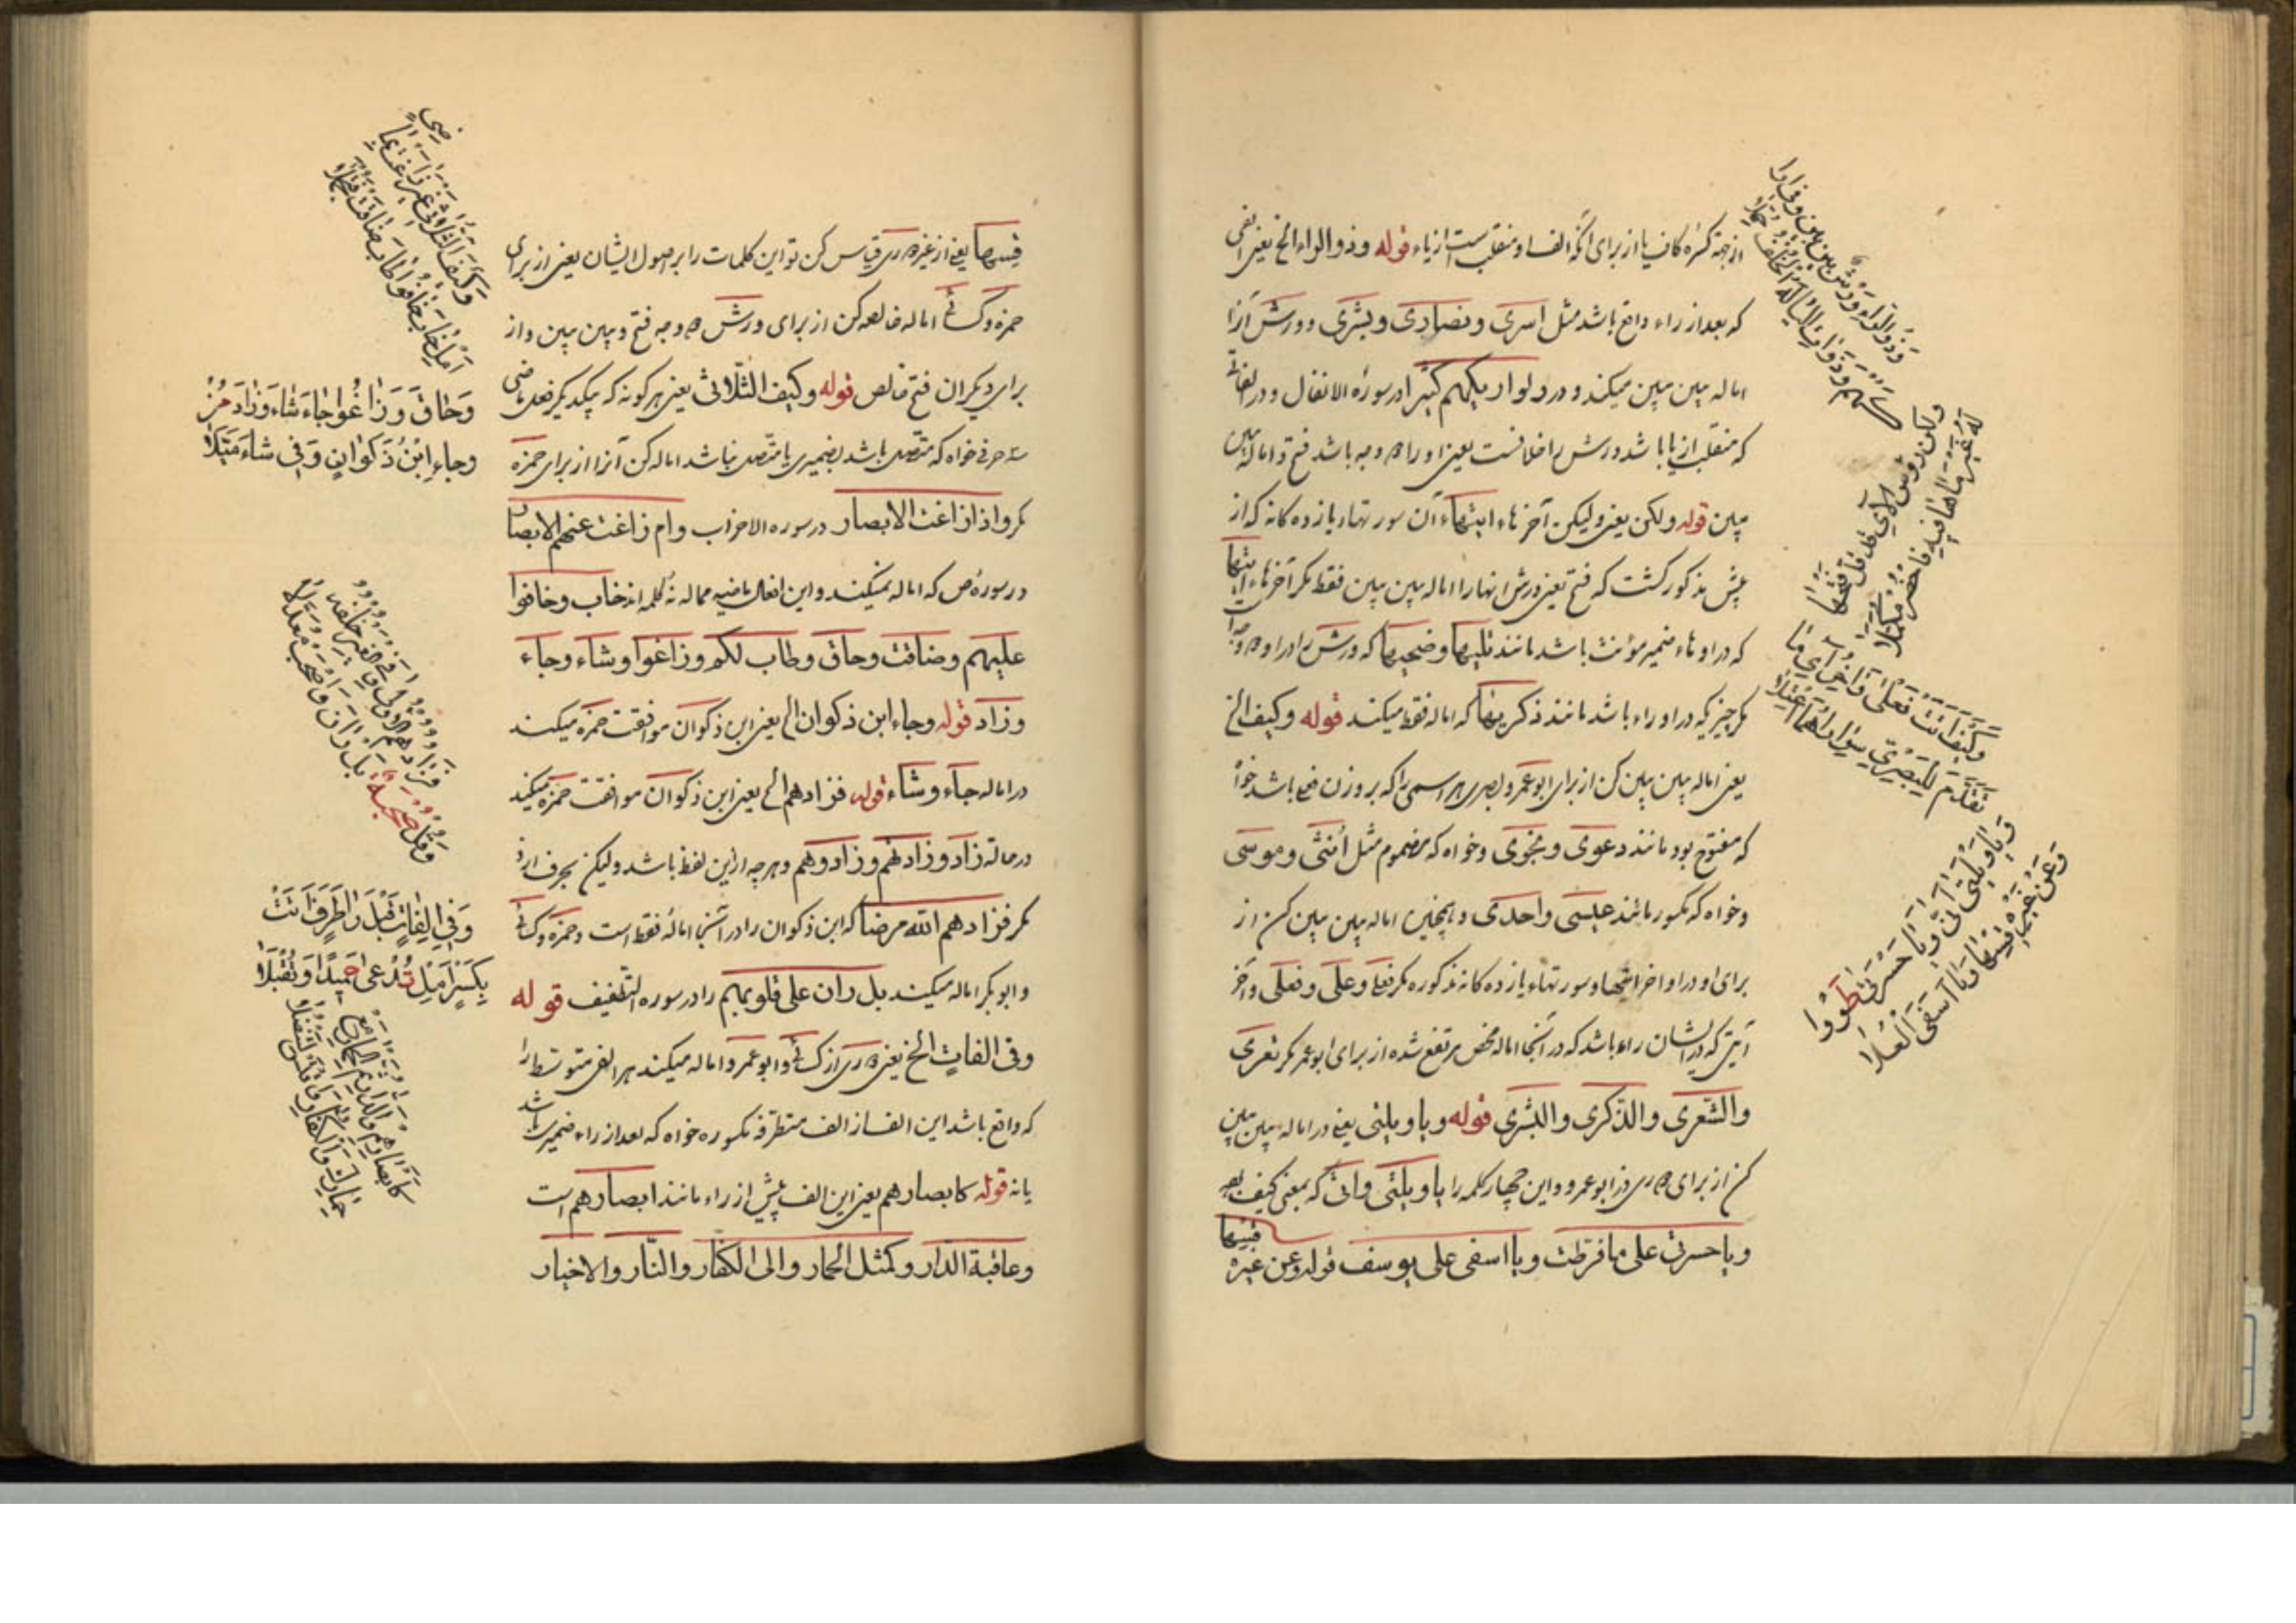 از جهة کسرهٔ کاف یا از برای آنکه الف او منقلب است از یاء قوله وذو الواء الخ یعنی الفی
که بعد از راء واقع باشد مثل اسری و نصاری و بشری و ورش آنرا
اماله بین بین میکند و در ولو اریکهم کثیرا در سورهٔ الانفال و در الفاتی
که منقلب از یا باشد ورش را خلافست یعنی او را دو وجه باشد فتح و اماله بین
بین قوله ولکن یعنی ولیکن آخرهاء ایتهاء آن سورتهاء یازده کانه که از
پیش مذکور گشت که فتح یعنی ورش انها را اماله بین بین فقط مگر آخرهاء ایتها
که در او هاء ضمیر مؤنث باشد مانند تلیها و ضحیها که ورش را در او دو وجه
مگر چیزیکه در او راء باشد مانند ذکریها که اماله فقط میکند قوله وکیف الخ
یعنی اماله بین بین کن از برای ابو عمرو بصری هر اسمی را که بر وزن فعلی باشد خواه
که مفتوح بود مانند دعوی و نجوی وخواه که مضموم مثل انثی وموسی
وخواه که مکسور مانند عیسی واحدی و همچنین اماله بین بین کن از
برای او در اواخر ایتها وسورتهاء یازده کانه مذکوره مگر فعلی وعلی وفعلی وآخر
آیتی که در ایشان راء باشد که در آنجا اماله محض مرتفع شده از برای ابو عمر مگر تعری
والشعری والذکری والبشری قوله ویا ویلتی یعنی در اماله بین بین
کن از برای دوری از ابو عمرو و این چهار کلمه را یا ویلتی وانی که بمعنی کیف بود
ویا حسرتی علی ما فرطت ویا اسفی علی یوسف قوله وعن غیره
قسها
وذو الراء ورش بین بین وفی ارا
کهم وذوات الیا له الخلف جملا
ولکن رؤس الآی قد قل فتحها
له غیر ما ها فیه فاحضر مکملا
وکیف اتت فعلی وآخر آی ما
تقدم للبصری سوی راهما اعتلا
ویا ویلتی انی ویا حسرتی طووا
وعن غیره قسها ویا اسفی العلا
قسها یعنی از غیر دوری قیاس کن تو این کلمات را بر اصول ایشان یعنی از برای
حمزه وکسائی اماله خالصه کن از برای ورش دو وجه فتح وبین بین و از
برای دیگران فتح خالص قوله وکیف الثلاثی یعنی هر کونه که بیکدیگر فعل ماضی
سه حرفی خواه که متصل باشد بضمیری یا متصل نباشد اماله کن آنرا از برای حمزه
مگر واذ زاغت الابصار در سوره الاحزاب وام زاغت عنهم الابصار
در سورهٔ ص که اماله نمیکند و این افعال ماضیه ممالهٔ نه کلمه اند خاب وخافوا
علیهم وضاقت وحاق وطاب لکم وزاغوا وشاء وجاء
وزاد قوله وجاء ابن ذکوان الخ یعنی ابن ذکوان موافقت حمزه میکند
در اماله جاء وشاء قوله فزادهم الخ یعنی ابن ذکوان موافقت حمزه میکند
در اماله زاد وزادهم وزادوهم وهر چه از این لفظ باشد ولیکن بحرف اول
مگر فزادهم الله مرضا که ابن ذکوان را در آنجا امالهٔ فقط است وحمزه وکسائی
وابو بکر اماله میکنند بل ران علی قلوبهم را در سوره التطفیف قوله
وفی الفات الخ یعنی دوری از کسائی وابو عمرو اماله میکنند هر الفی متوسط را
که واقع باشد این الف از الف متطرفه مکسوره خواه که بعد از راء ضمیر باشد
یا نه قوله کابصارهم یعنی این الف پیش از راء مانند ابصارهم است
وعاقبة الدار وکمثل الحمار والی الکفار والنار والاخیار
وکیف الثلاثی غیر زاغت بماضی
امل خاب خافوا طاب ضاقت فتجملا
وحاق وزاغوا جاء شاء وزاد فز
وجاء ابن ذکوان وفی شاء میلا
فزادهم الاولی وفی الغیر خلفه
وقل صحبة بل ران واصحب معدلا
وفی الفات قبل را طرف اتت
بکسر امل تدعی حمیدا وتقبلا
کابصارهم والدار ثم الحمار مع
حمارک والکفار واقتس لتنضلا